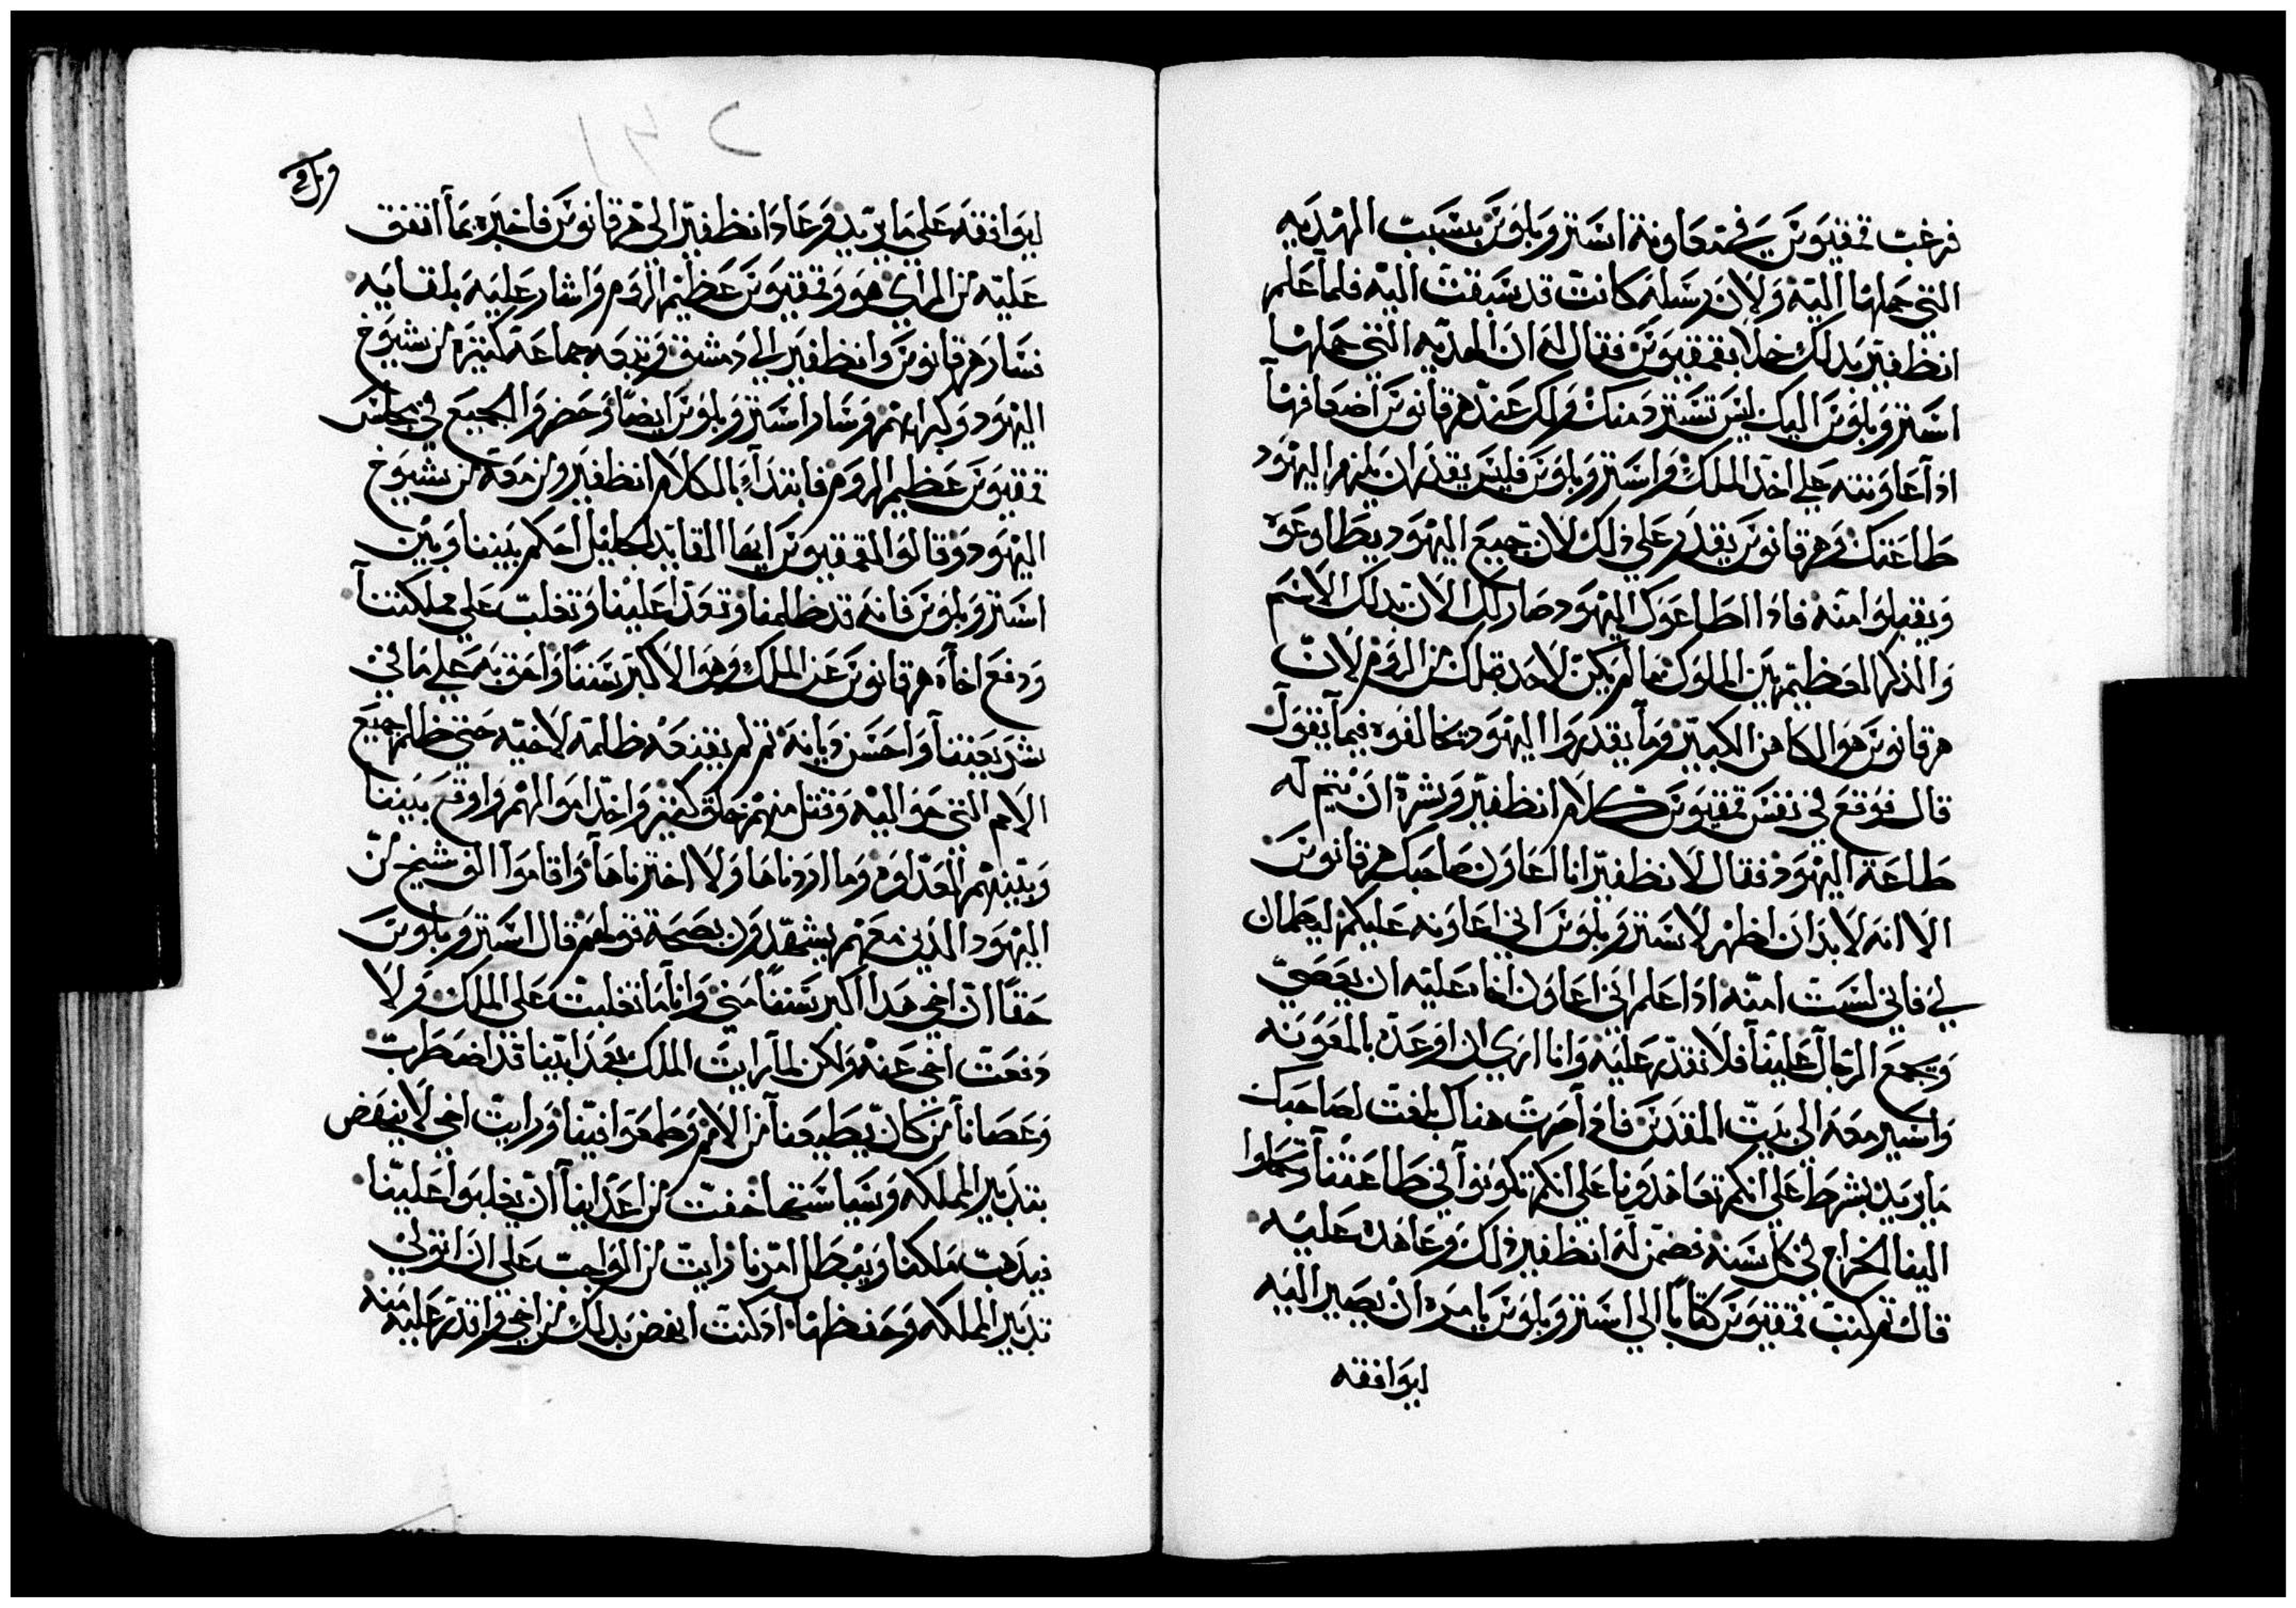 فرغب تمقيوس في معاونة استروبلوس بسبب الهديه
التي حملها اليه ولان رسله كانت قد سبقت اليه فلما علم
انظفير بدلك خلا بقمقيوس فقال له ان الهديه التي حملها
استروبلوس اليك ليس تسترد منك ولك عند هرقانوس اضعافها
ادا عاونته علي اخد الملك واستروبلوس فليس يقدر ان يلزم اليهود
طاعتك وهرقانوس يقدر علي ذلك لان جميع اليهود يطاوعوه
ويقبلوا منه فادا اطاعوك اليهود صار لك الان بدلك الاسم
والذكر العظيم بين الملوك مما لم يكن لاحد قبلك من الروم لان
هرقانوس هو الكاهن الكبير وما يقدروا اليهود تخالفوه فيما يقول
قال فوقع في نفس تمقيوس كلام انظفير وبشره ان يتم له
طاعة اليهود فقال لانظفير انا اعاون صاحبك هرقانوس
الا انه لا بد ان اظهر لاستروبلوس اني اعاونه عليكم ليطمان
لي فاني لست امنه ادا علم اني اعاون اخاه عليه ان يعصي
ويجمع الرجال علينا فلا نقدر عليه وانا اري ان اوعده بالمعونه
واسير معه الي بيت المقدس فادا صرت هناك بلغت لصاحبك
ما يريد بشرط علي انكم تعاهدونا علي انكم تكونوا في طاعتنا وتحملوا
الينا الخراج في كل سنه فضمن له انظفير ذلك وعاهده عليه
قال ثم كتب تمقيوس كتابا الي استروبلوس يامره ان يصير اليه
ليوافقه
ليوافقه علي ما يريد وعاد انظفير الي هرقانوس فاخبره بما اتفق
عليه من الراي هو وقمقيوس عظيم الروم واشار عليه بلقايه
فسار هرقانوس وانظفير الي دمشق وتبعه جماعة كثيره من شيوخ
اليهود وكبرايهم وسار استروبلوس ايضا وحضروا الجميع في مجلس
تمقيوس عظيم الروم فابتداء بالكلام انظفير ومن معه من شيوخ
اليهود وقالوا لقمقيوس ايها القايد الجليل احكم بيننا وبين
استروبلوس فانه قد ظلمنا وتعدا علينا وتغلب علي مملكتنا
ودفع اخاه هرقانوس عن الملك وهو الاكبر سننا واعرف به علي ما في
شريعتنا واحسن ديانه ثم لم يقنعه ظلمه لاخيه حتي ظلم جميع
الامم التي حواليه وقتل منهم خلق كثير واخد اموالهم واوقع بيننا
وبينهم العداوه وما اردناها ولا اخترناها واقاموا الف شيخ من
اليهود الذين معهم يشهدون بصحة قولهم قال استروبلوس
حقا ان اخي هدا اكبر سننا مني وانا ما تغلبت علي الملك ولا
دفعت اخي عنه ولكن لما رايت الملك بعد ابينا قد اضطرب
وعصانا من كان يطيعنا من الامم وطمعوا فينا ورايت اخي لا ينهض
بتدبير المملكه وسياستها خفت من اعداينا ان يغلبوا علينا
فيدهب ملكنا ويبطل امرنا رايت من الواجب علي ان اتولي
تدبير المملكه وحفظها اد كنت انهض بدلك من اخي واقدر عليه منه